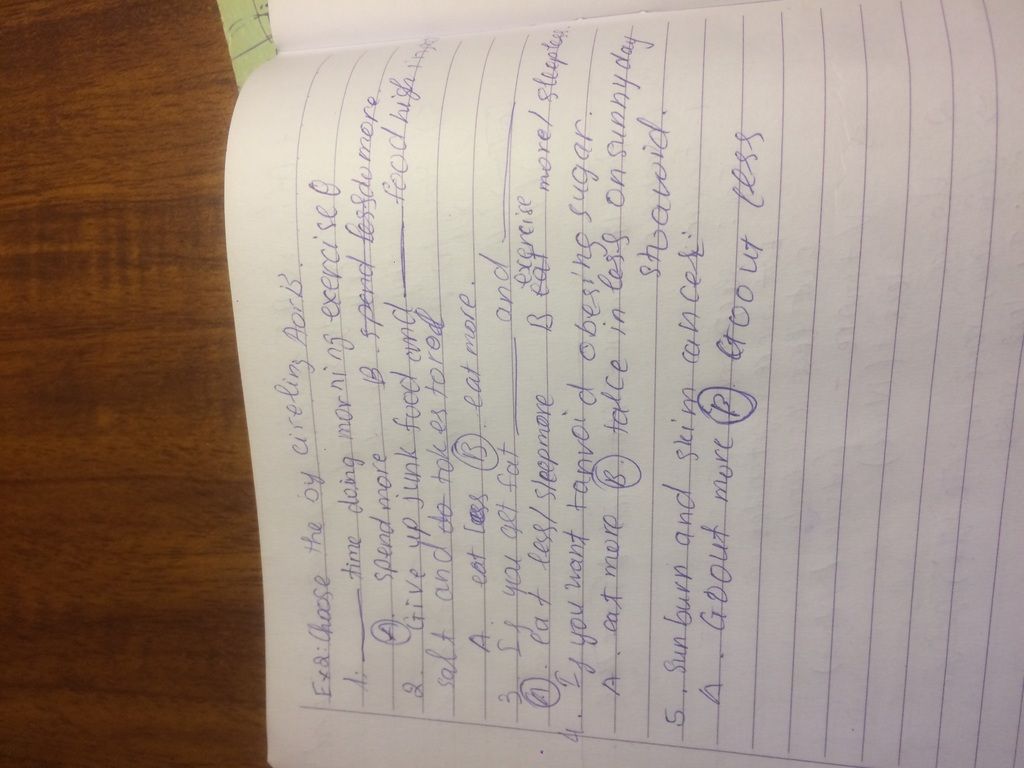 Ex2: Choose the by circling AorB.
1. ____ time doing morning exercise
A spend more B. spend less d more
2. Give up junk food and ____ food high in
salt and do takes tored
A. eat less B. eat more.
3 If you get fat ____ and ____
A. eat less/ sleepmore B eat exercise more/ sleepless
4. If you want tanvoid obesing sugar.
A. eat more B) take in less on sunny day
shoawid.
5. Sunburn and skim ancer.
A. Goout more B Goout less